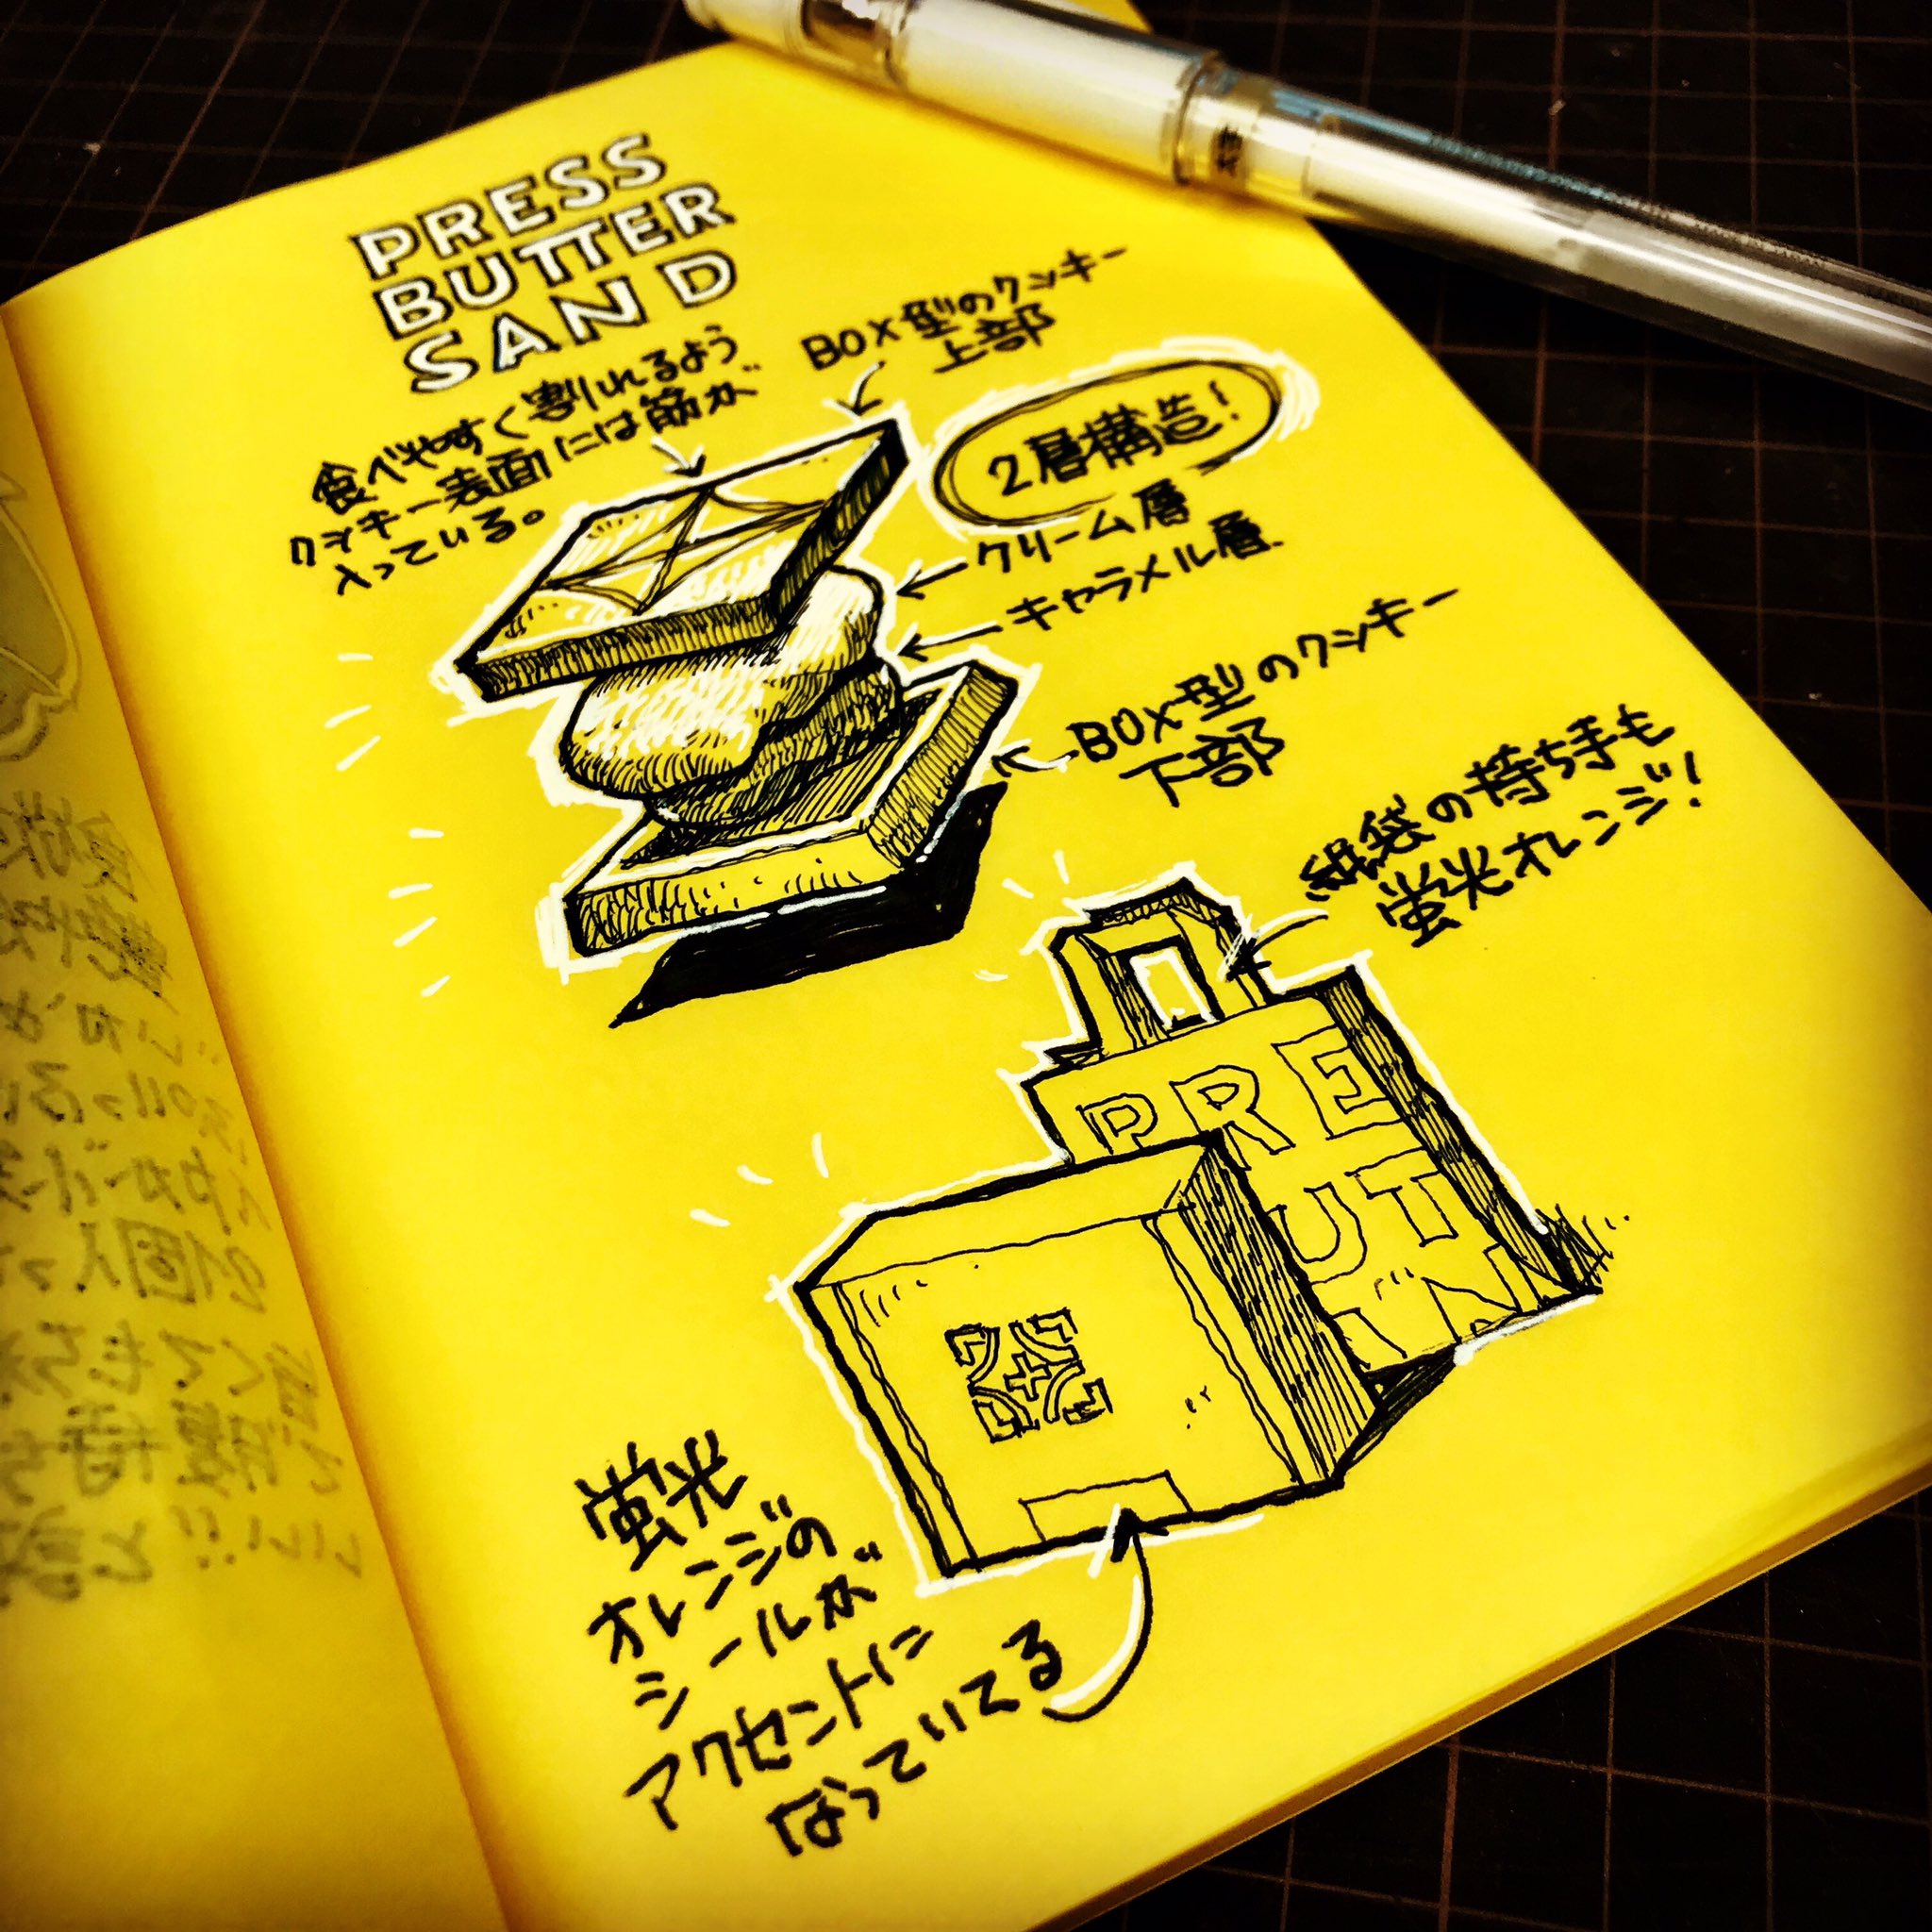 PRESS
BUTTER
SAND
食べやすく割りれるよう
クッキー表面には筋が
入っている。
BOX型のクッキー
上部
2層構造!
クリーム層
キャラメル層
BOX型のクッキー
下部
紙袋の持ち手も
蛍光オレンジ!
PRE
UT
N
蛍光
オレンジの
シールが
アクセントに
なっていてる